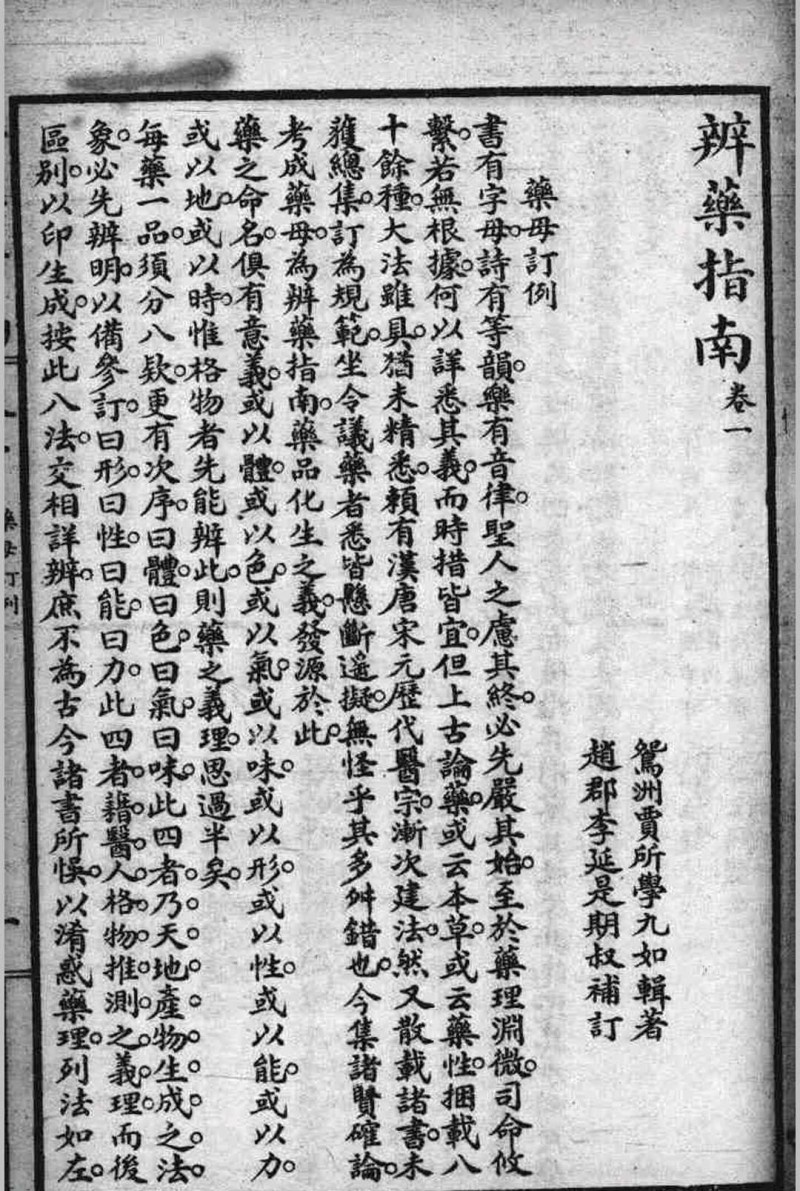 辨藥指南卷一
鴛洲賈所學九如輯著
趙郡李延是期叔補訂
藥母訂例
書有字母。詩有等韻。藥有音律。聖人之慮其終。必先嚴其始。至於藥理淵微。司命攸
繫。若無根據。何以詳悉其義。而時措皆宜。但上古論藥。或云本草。或云藥性。捆載八
十餘種。大法雖具。猶未精悉。賴有漢唐宋元歷代醫宗。漸次建法。然又散載諸書。未
獲總集。訂為規範。坐令議藥者悉皆懸斷遥擬。無怪乎其多舛錯也。今集諸賢確論。
考成藥母。為辨藥指南。藥品化生之義。發源於此。
藥之命名。俱有意義。或以體。或以色。或以氣。或以味。或以形。或以性。或以能。或以力。
或以地。或以時。惟格物者先能辨此。則藥之義理。思過半矣。
每藥一品。須分八欵。更有次序。曰體。曰色。曰氣。曰味。此四者。乃天地產物生成之法
象。必先辨明。以備參訂。曰形。曰性。曰能。曰力。此四者。藉醫人格物推測之義理。而後
區別。以印生成。按此八法。交相詳辨。庶不為古今諸書所悞。以淆惑藥理。列法如左。
藥母訂例